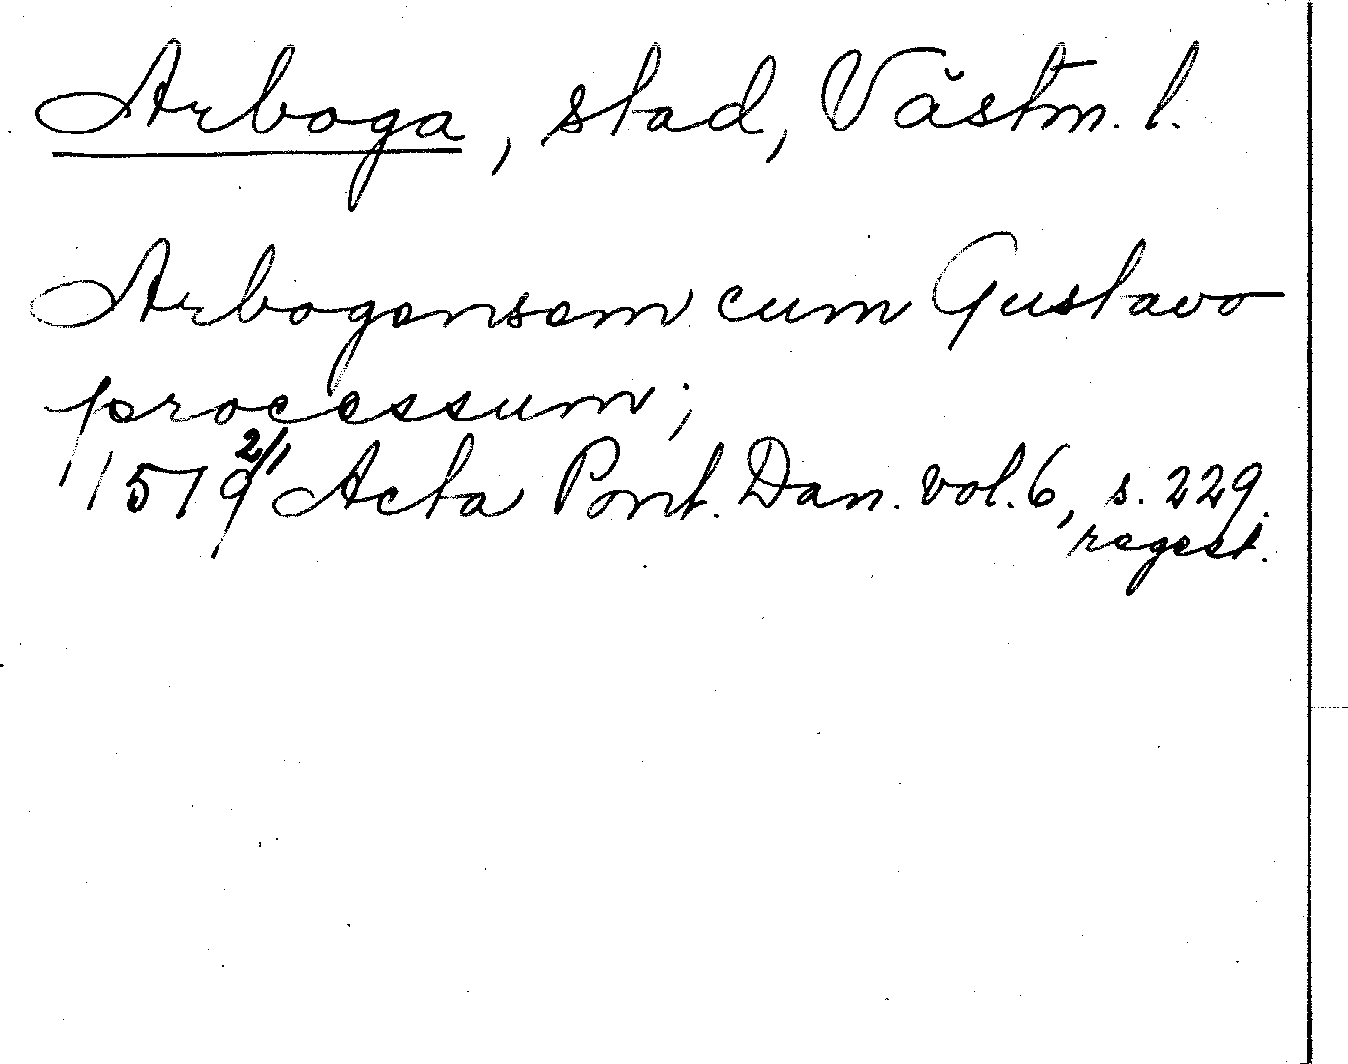 Arboga, stad, Västm. l.
Arbogensem cum Gustavo
processum;
1519 2/1 Acta Pont. Dan. vol. 6, s. 229.
regest.